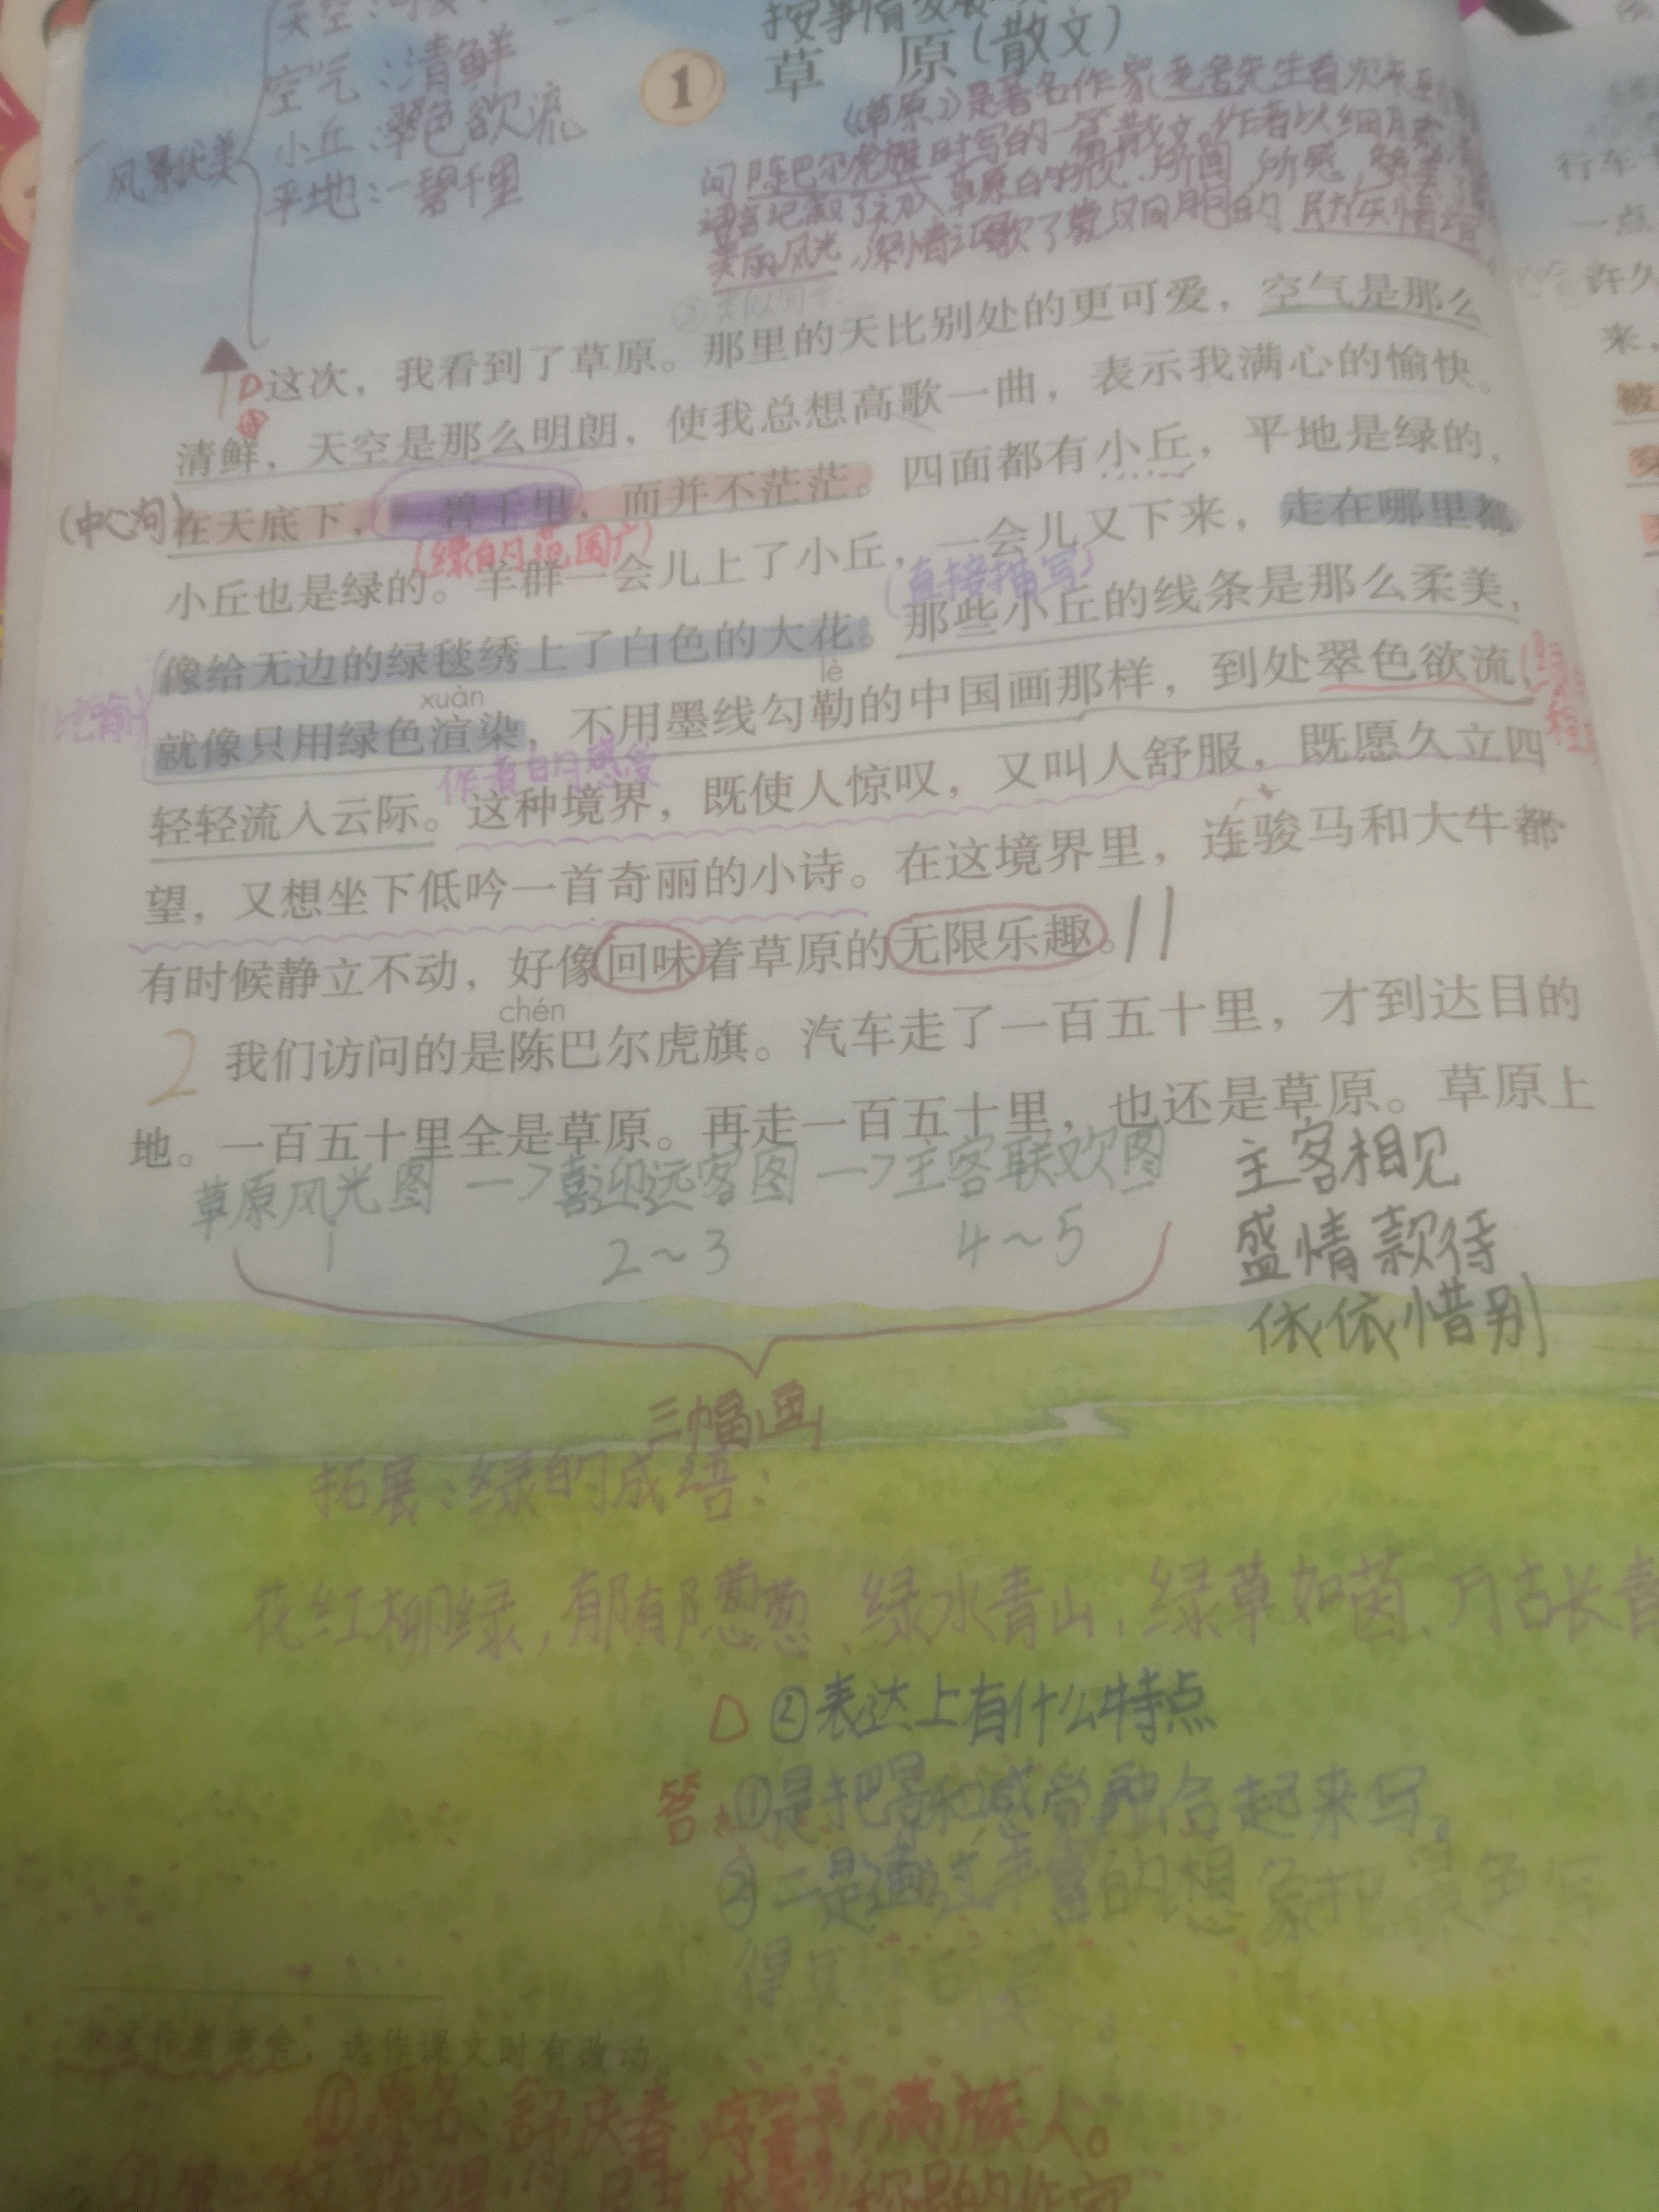 天空:可爱
空气:清鲜
小丘:翠色欲流
平地:一碧千里
风景优美
按事情发展
1 草原(散文)
《草原》是著名作家老舍先生首次来到
问陈巴尔虎旗时写的一篇散文。作者以细腻
语言记叙了初入草原的情况、所闻,所感,赞美
美丽风光,深情讴歌了蒙汉同胞的民族情谊
这次,我看到了草原。那里的天比别处的更可爱,空气是那么
清鲜,天空是那么明朗,使我总想高歌一曲,表示我满心的愉快。
(中心句)
在天底下,一碧千里,而并不茫茫。四面都有小丘,平地是绿的,
(绿的范围广)
小丘也是绿的。羊群一会儿上了小丘,一会儿又下来,走在哪里都
(直接描写)
像给无边的绿毯绣上了白色的大花。那些小丘的线条是那么柔美,
(比喻)
xuàn lè
就像只用绿色渲染,不用墨线勾勒的中国画那样,到处翠色欲流,
作者的感受
轻轻流入云际。这种境界,既使人惊叹,又叫人舒服,既愿久立四
望,又想坐下低吟一首奇丽的小诗。在这境界里,连骏马和大牛都
有时候静立不动,好像回味着草原的无限乐趣。
chén
2 我们访问的是陈巴尔虎旗。汽车走了一百五十里,才到达目的
地。一百五十里全是草原。再走一百五十里,也还是草原。草原上
草原风光图→喜迎远客图→主客联欢图
1 2~3 4~5
主客相见
盛情款待
依依惜别
三幅画
拓展:绿的成语:
花红柳绿,郁郁葱葱、绿水青山,绿草如茵、万古长青
②表达上有什么特点
答:①是把景和感觉融合起来写。
②二是通过丰富的想象把景色写
得具
本文作者老舍,选作课文时有改动
①原名:舒庆春 字舍予,满族人。